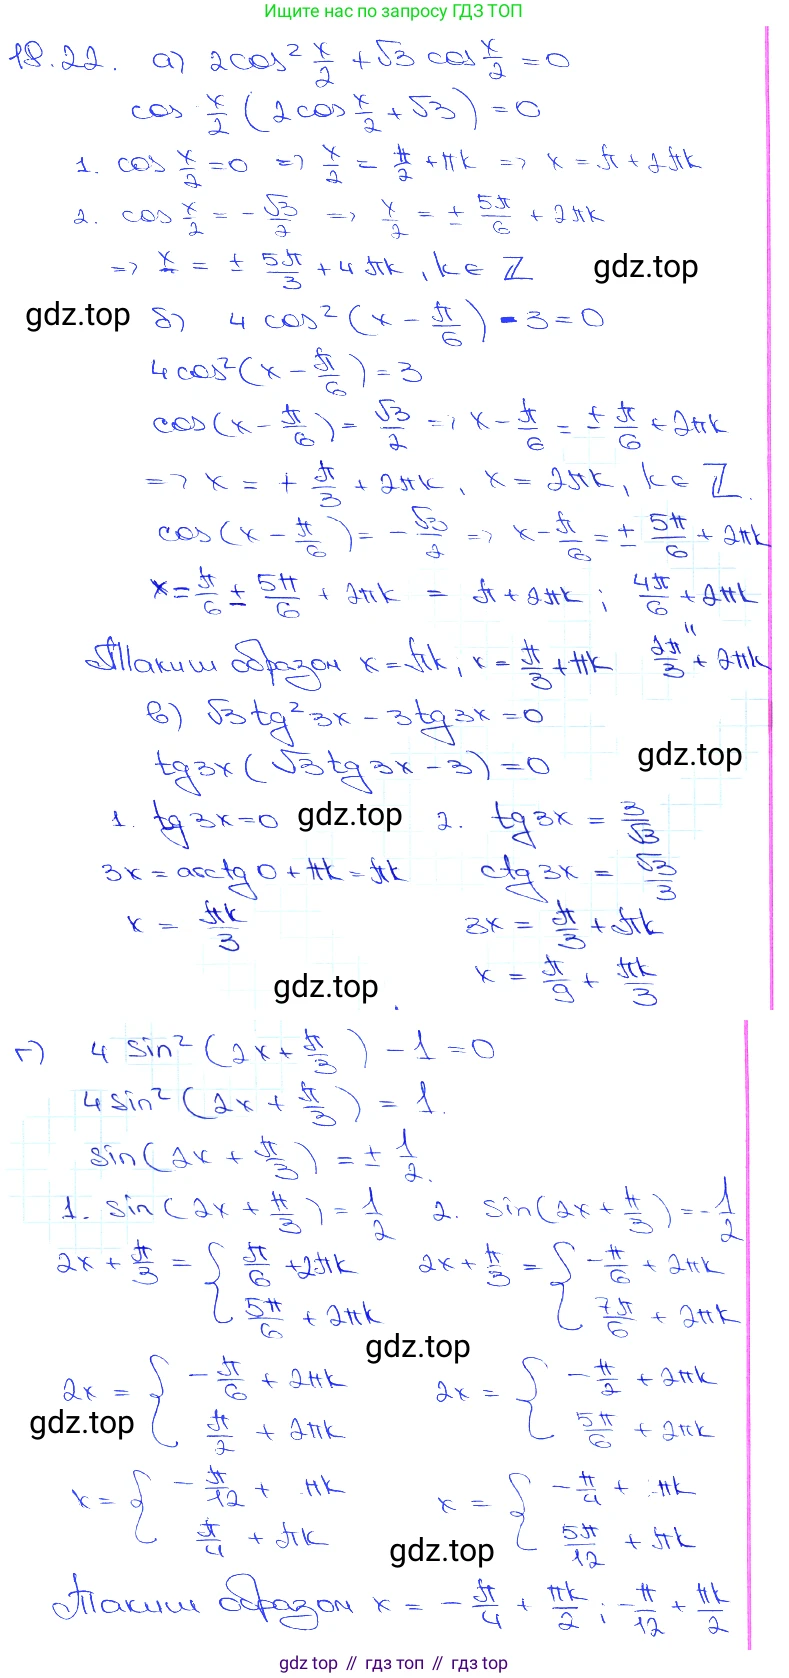 Ищите нас по запросу ГДЗ ТОП
18.22. а) 2cos² x/2 + √3 cos x/2 = 0
cos x/2 (2cos x/2 + √3) = 0
1. cos x/2 = 0 => x/2 = π/2 + πk => x = π + 2πk
2. cos x/2 = - √3/2 => x/2 = ± 5π/6 + 2πk
=> x = ± 5π/3 + 4πk, k ∈ ℤ
gdz.top
gdz.top
б) 4 cos² (x - π/6) - 3 = 0
4cos² (x - π/6) = 3
cos (x - π/6) = √3/2 => x - π/6 = ± π/6 + 2πk
=> x = + π/3 + 2πk, x = 2πk, k ∈ ℤ.
cos (x - π/6) = - √3/2 => x - π/6 = ± 5π/6 + 2πk
x = π/6 ± 5π/6 + 2πk = π + 2πk; 4π/6 + 2πk
"
2π/3 + 2πk
Таким образом x = πk, x = π/3 + πk
в) √3 tg² 3x - 3 tg 3x = 0
tg 3x (√3 tg 3x - 3) = 0
gdz.top
1. tg 3x = 0
gdz.top
2. tg 3x = 3/√3
3x = arctg 0 + πk = πk
ctg 3x = √3/3
x = πk/3
3x = π/3 + πk
x = π/9 + πk/3
gdz.top
г) 4 sin² (2x + π/3) - 1 = 0
4 sin² (2x + π/3) = 1.
sin (2x + π/3) = ± 1/2.
1. sin (2x + π/3) = 1/2
2. sin (2x + π/3) = - 1/2
2x + π/3 = { π/6 + 2πk
5π/6 + 2πk
2x + π/3 = { - π/6 + 2πk
7π/6 + 2πk
gdz.top
2x = { - π/6 + 2πk
π/2 + 2πk
2x = { - π/2 + 2πk
5π/6 + 2πk
gdz.top
x = { - π/12 + πk
π/4 + πk
x = { - π/4 + πk
5π/12 + πk
gdz.top
Таким образом x = - π/4 + πk/2; - π/12 + πk/2
gdz.top // гдз топ // гдз.top